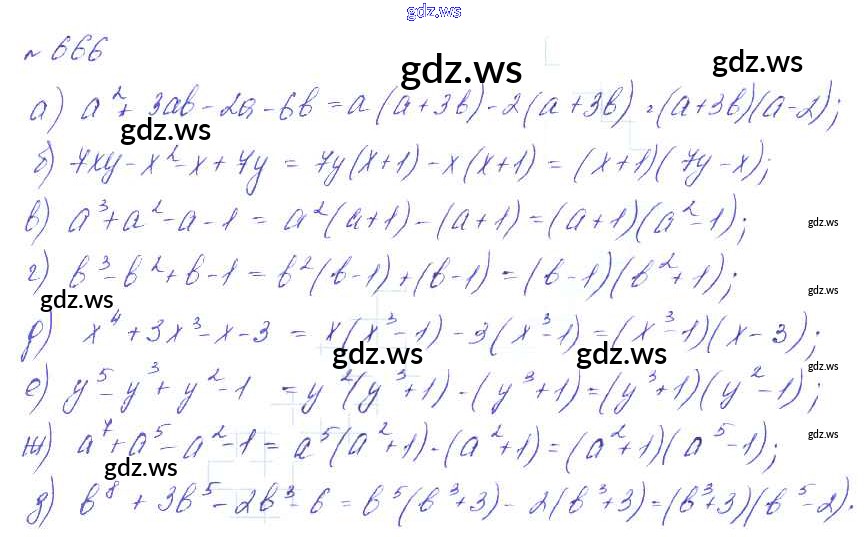 gdz.ws
№ 666
gdz.ws gdz.ws
а) a² + 3ab - 2a - 6b = a(a+3b) - 2(a+3b) = (a+3b)(a-2);
gdz.ws
б) 7xy - x² - x + 7y = 7y(x+1) - x(x+1) = (x+1)(7y-x);
в) a³ + a² - a - 1 = a²(a+1) - (a+1) = (a+1)(a²-1);
gdz.ws
г) b³ - b² + b - 1 = b²(b-1) + (b-1) = (b-1)(b²+1);
gdz.ws gdz.ws
д) x⁴ + 3x³ - x - 3 = x(x³-1) - 3(x³-1) = (x³-1)(x-3);
gdz.ws gdz.ws gdz.ws
е) y⁵ - y³ + y² - 1 = y²(y³+1) - (y³+1) = (y³+1)(y²-1);
ж) a⁷ + a⁵ - a² - 1 = a⁵(a²+1) - (a²+1) = (a²+1)(a⁵-1);
gdz.ws
gdz.ws
д) b⁸ + 3b⁵ - 2b³ - 6 = b⁵(b³+3) - 2(b³+3) = (b³+3)(b⁵-2).